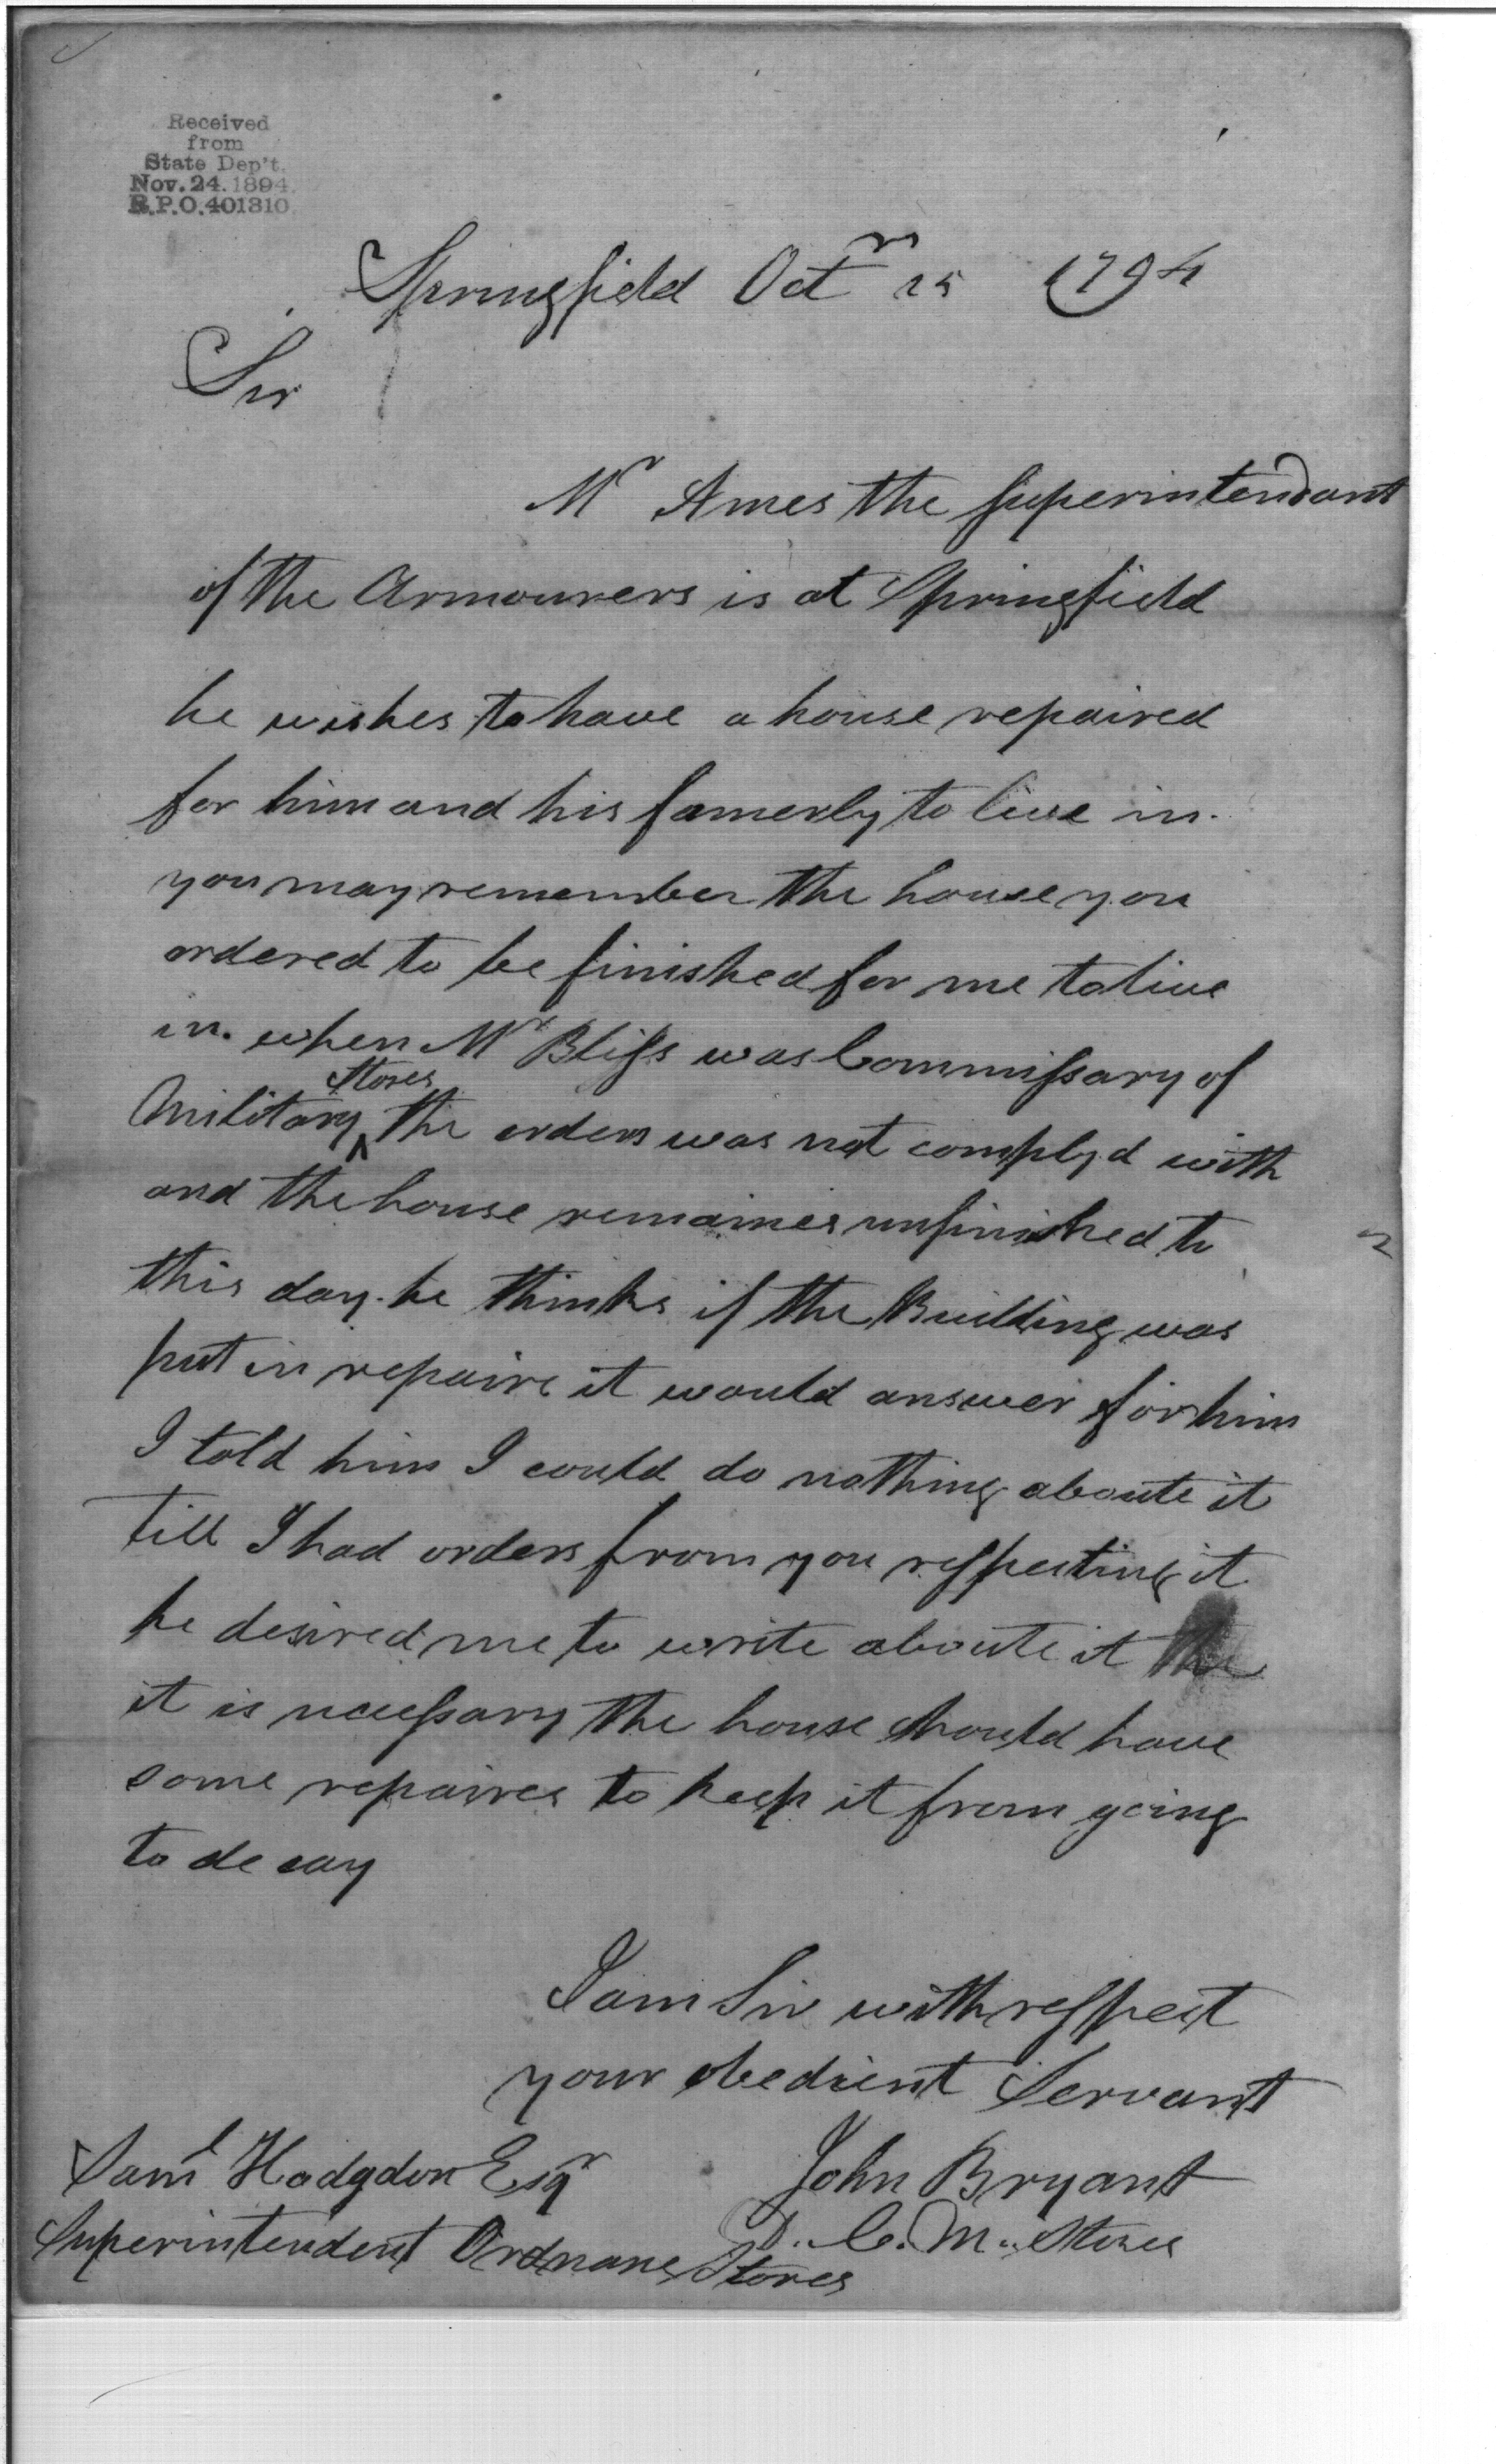 Received
from
State Dep't.
Nov. 24. 1894.
R.P.O. 401310.
Springfield Octr 25 1794
Sir
Mr Ames the superintendant
of the Armourers is at Springfield
he wishes to have a house repaired
for him and his famerly to live in.
you may remember the house you
ordered to be finished for me to live
in. when Mr Bliss was Commissary of
Stores
Military ^ the orders was not comply,d with
and the house remaines unfinished to
this day. he thinks if the Building was
put in repaire it would answer for him
I told him I could do nothing aboute it
till I had orders from you respecting it
he desired me to write aboute it the
it is necessary the house should have
some repaires to keep it from going
to decay
I am Sir with respect
your obedient Servant
Saml Hodgdon Esqr
John Bryant
Superintendent Ordnance Stores
D. C. M. Stores